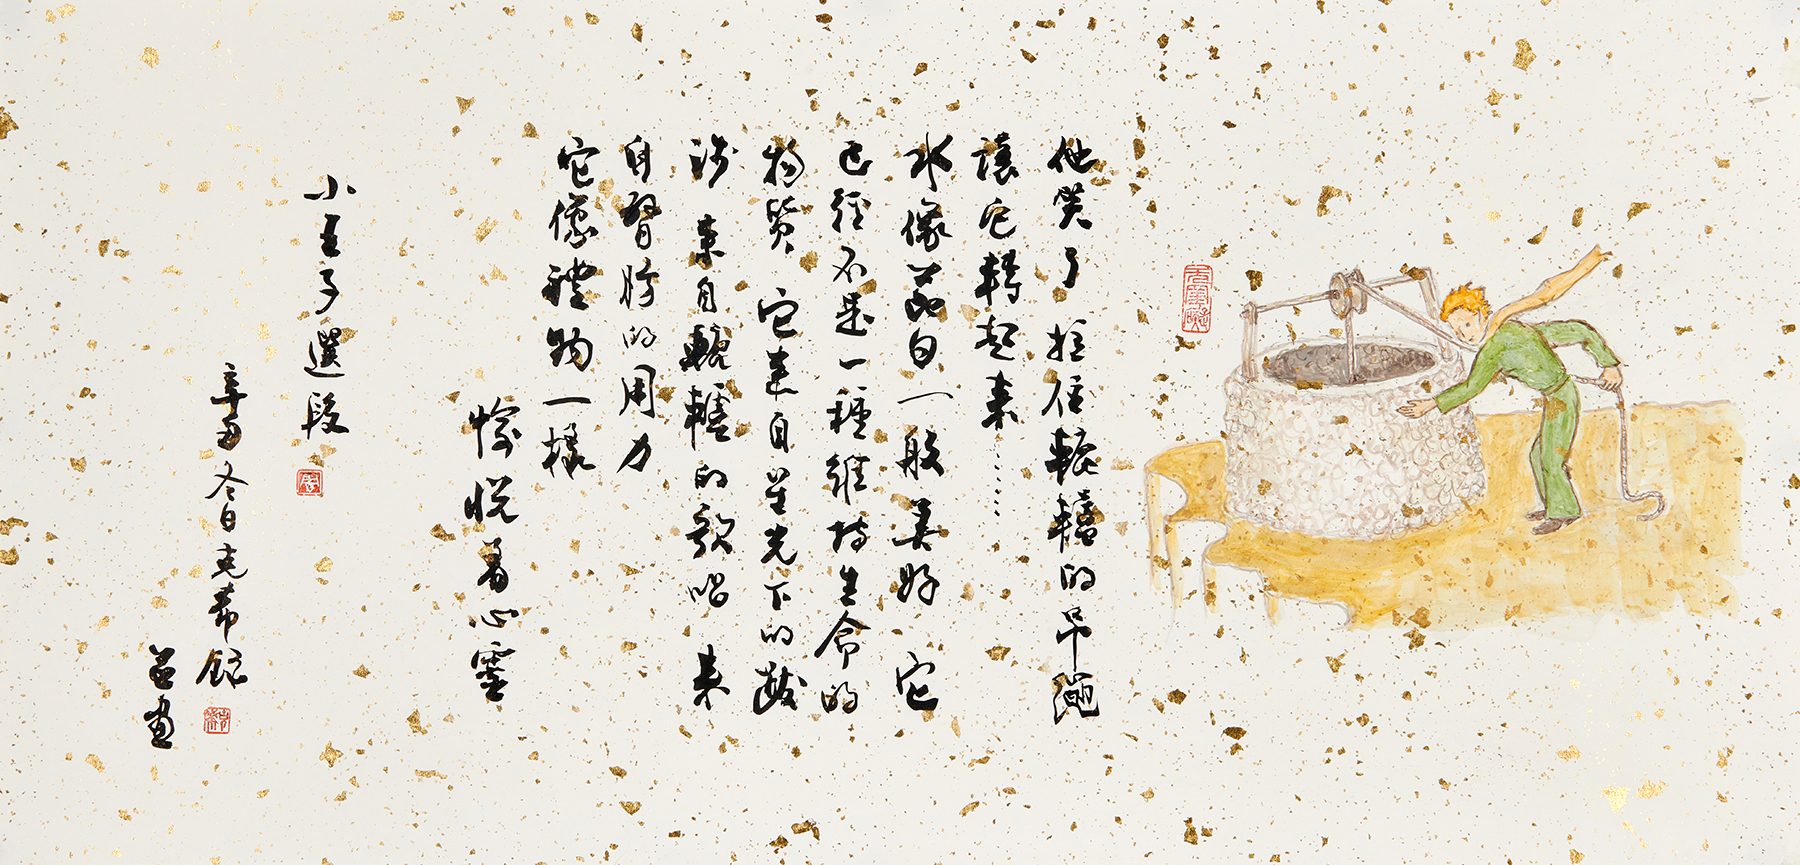 他笑了 拉住轆轤的吊繩
讓它轉起來……
水像節日一般美好 它
已經不是一種維持生命的
物質 它來自星光下的跋
涉 來自轆轤的歌唱 來
自臂膀的用力
它像禮物一樣
愉悅着心靈
小王子選段
辛丑冬日克希錄
並畫